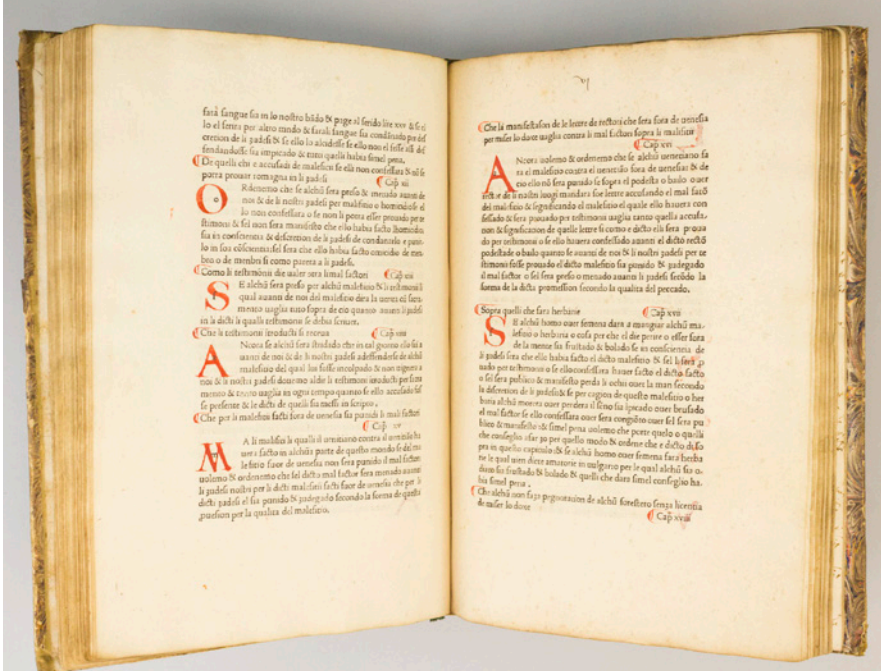 farà sangue sia in lo nostro bādo & page al ferido lire xxv & se el
lo el ferira per altro mudo & farali sangue sia condānado per dis
cretion de li zudesi & se ello lo alcidesse se ello non el fesse assi def
fendandosse sia impicado & tuti quelli habia simel pena.
De quelli che e accusadi de maleficii se ello non confessara & nō se
porra prouar romagna in li zudesi Cap̄ xii
ORdenemo che se alchū sera preso & menado auanti de
noi & de li nostri zudesi per maleficio o homicidio se el
lo non confessara o se non li porra esser prouado per te
stimonii & sel non sera manifesto che ello habia facto lhomicidio
sia in conscientia & discretion de li zudesi de condanarlo e punir
lo in sos cōscientia: sel sera che ello habia facto omicidio de mem
bro o de membri si como parera a li zudesi.
Como li testimonii die ualer cōtra li mal factori Cap̄ xiii
SE alchū sera preso per alchū maleficio & li testimonii li
qual auanti de noi del maleficio dira la uerita cō sacra
mento uaglia tuto sopra de cio quanto auanti li zudesi
in la dicti li qualli testimonii se debia scriuer.
Che li testimonii introducti si zecoua Cap̄ xiiii
ANcora se alchū sera stridado che in tal giorno ello sia a
uanti de noi & de li nostri zudesi a deffenderse de alchū
maleficio del qual lui fosse incolpado & non uignera a
noi & li nostri zudesi douemo aldir li testimonii introducti per sacra
mento & tanto uaglia in ogni tempo quanto se ello accusado fos
se presente & le dicti de quelli sia messi in scripto.
Che per li maleficii facti fora de uenesia sia punidi li mal factori
Cap̄ xv
MA li malificii li qualli il uenitiano contra il uenitiāo ha
uera facto in alchūa parte de questo mondo se del ma
leficio fuor de uenesia non sera punido il mal factor
uolemo & ordenemo che sel dicto mal factor sera menado auanti
li zudesi nostri per li dicti maleficii facti fuor de uenesia che per li
dicti zudesi el sia punido & zudegado secondo la forma de questa
ꝓmession per la qualita del maleficio.
VI
Che la manifestason de le letere de rectori che sera fora de uenesia
per miser lo doxe uaglia contra li mal factori sopra li malificii
Cap̄ xvi
ANcora uolemo & ordenemo che se alchū uenetiano fa
ra el maleficio contra el uenetiāo fora de uenesia: & de
cio ello nō sera punido se sopra el podesta o bailo o uer
rector de li nostri luogi mandara soe letere accusando el mal factō
del maleficio & significando el maleficio el quale ello hauera con
fessado & sera prouado per testimonii uaglia tanto quella accusa
tion & signification de quelle letere si como e dicto elli sera proua
do per testimonii o se ello hauera confessado auanti el dicto rectō
podestade o bailo quanto se auanti de noi & li nostri zudesi per te
stimonii fosse prouado el dicto maleficio sia punido & zudegado
il mal factor o sel sera preso o menado auanti li zudesi secūdo la
forma de la dicta promession secondo la qualita del peccado.
Sopra quelli che fara herbarie Cap̄ xvii
SE alchū homo ouer femena dara a mangiar alchū ma
leficio o herbaria o cosa per che el die perire o esser fora
de la mente sia frustado & bolado se in conscientia de
li zudesi sera che ello habia facto el dicto maleficio & sel li sera ꝓ
uado per testimonii o se ello confessara hauer facto el dicto facto
o sel sera publico & manifesto perda li ochii ouer la man secondo
la discretion de li zudesi: & se per cagion de questo maleficio o her
baria alchū morira ouer perdera il seno sia ipicado ouer brusado
el mal factor se ello confessara ouer sera conuinto ouer sel sera pu
blico & manifesto: & simel pena uolemo che porte quelo o quelli
che conseglio a far zo per quello modo & ordene che e dicto di so
pra in questo capitulo: & se alchū homo ouer femena fara herba
rie le qual uien dicte amatorie in uulgaro per le qual alchū sia o-
diato sia frustado & bolado & quelli che dara simel conseglio ha
bia simel pena.
Che alchū non faza pegnoration de alchū forestero senza licentia
de miser lo doxe
Cap̄ xviii